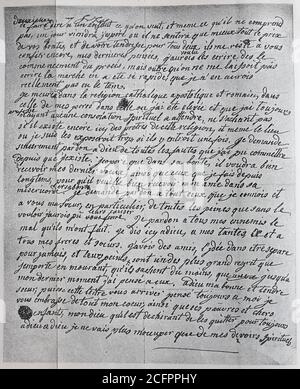 faire dire à un enfant ce qu'on veut, et même ce qu'il ne comprend
pas, un jour viendra j'espere où il ne sentira que mieux tout le prix
de vos bontés et de votre tendresse pour tous deux. il me reste à vous
confier encore, mes dernieres pensées, j'aurois les ecrire des le
commencement du procès, mais outre qu'on ne me laissoit pas
ecrire la marche en a été si rapide, que je n'en aurois
reellement pas eu le tems.
je meurs dans la religion catholique apostolique et romaine, dans
celle de mes peres, dans celle où j'ai été elevée et que j'ai toujours
n'ayant aucune consolation spirituelle a attendre, ne sachant pas
s'il existe encore ici des prêtres de cette religion, et meme le lieu
où je suis les exposeroit trop si ils y entroient une fois. je demande
sincerement pardon à dieu de toutes les fautes que j'ai pu commettre
depuis que j'existe. j'espere que dans sa bonté, il voudra bien
recevoir mes derniers voeux, ainsi que ceux que je fais depuis
longtems pour qu'il veuille bien recevoir mon ame dans sa
misericorde je connois et
a vous ma soeur, en particulier, de toutes les peines que sans le
vouloir j'aurois pu vous causer je pardonne à tous mes ennemis le
mal qu'ils m'ont fait. je dis ici adieu, a mes tantes et a
tous mes freres et soeurs. j'avois des amis, l'idée d'en être separée
pour jamais, et leurs peines, sont un des plus grand regret que
j'emporte en mourant, qu'ils sachent du moins que jusqu'a
mon dernier moment j'ai pensé a eux. adieu ma bonne et tendre
soeur; puisse cette lettre vous arriver pensé toujours a moi je
vous embrasse de tout mon coeur, ainsi que ces pauvres et chers
enfants, mon dieu qu'il est dechirant de les quitter pour toujours
adieu adieu je ne vais plus m'occuper que de mes devoirs spirituels